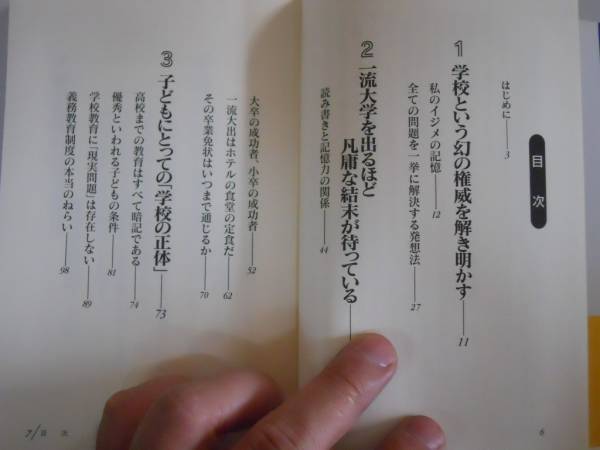 目次
はじめに――3
1 学校という幻の権威を解き明かす――11
私のイジメの記憶――12
全ての問題を一挙に解決する発想法――27
2 一流大学を出るほど
凡庸な結末が待っている――
読み書きと記憶力の関係――44
6
大卒の成功者、小卒の成功者――52
一流大出はホテルの食堂の定食だ――62
その卒業免状はいつまで通じるか――70
3 子どもにとっての「学校の正体」――73
高校までの教育はすべて暗記である――74
優秀といわれる子どもの条件――81
学校教育に「現実問題」は存在しない――89
義務教育制度の本当のねらい――98
7/目 次